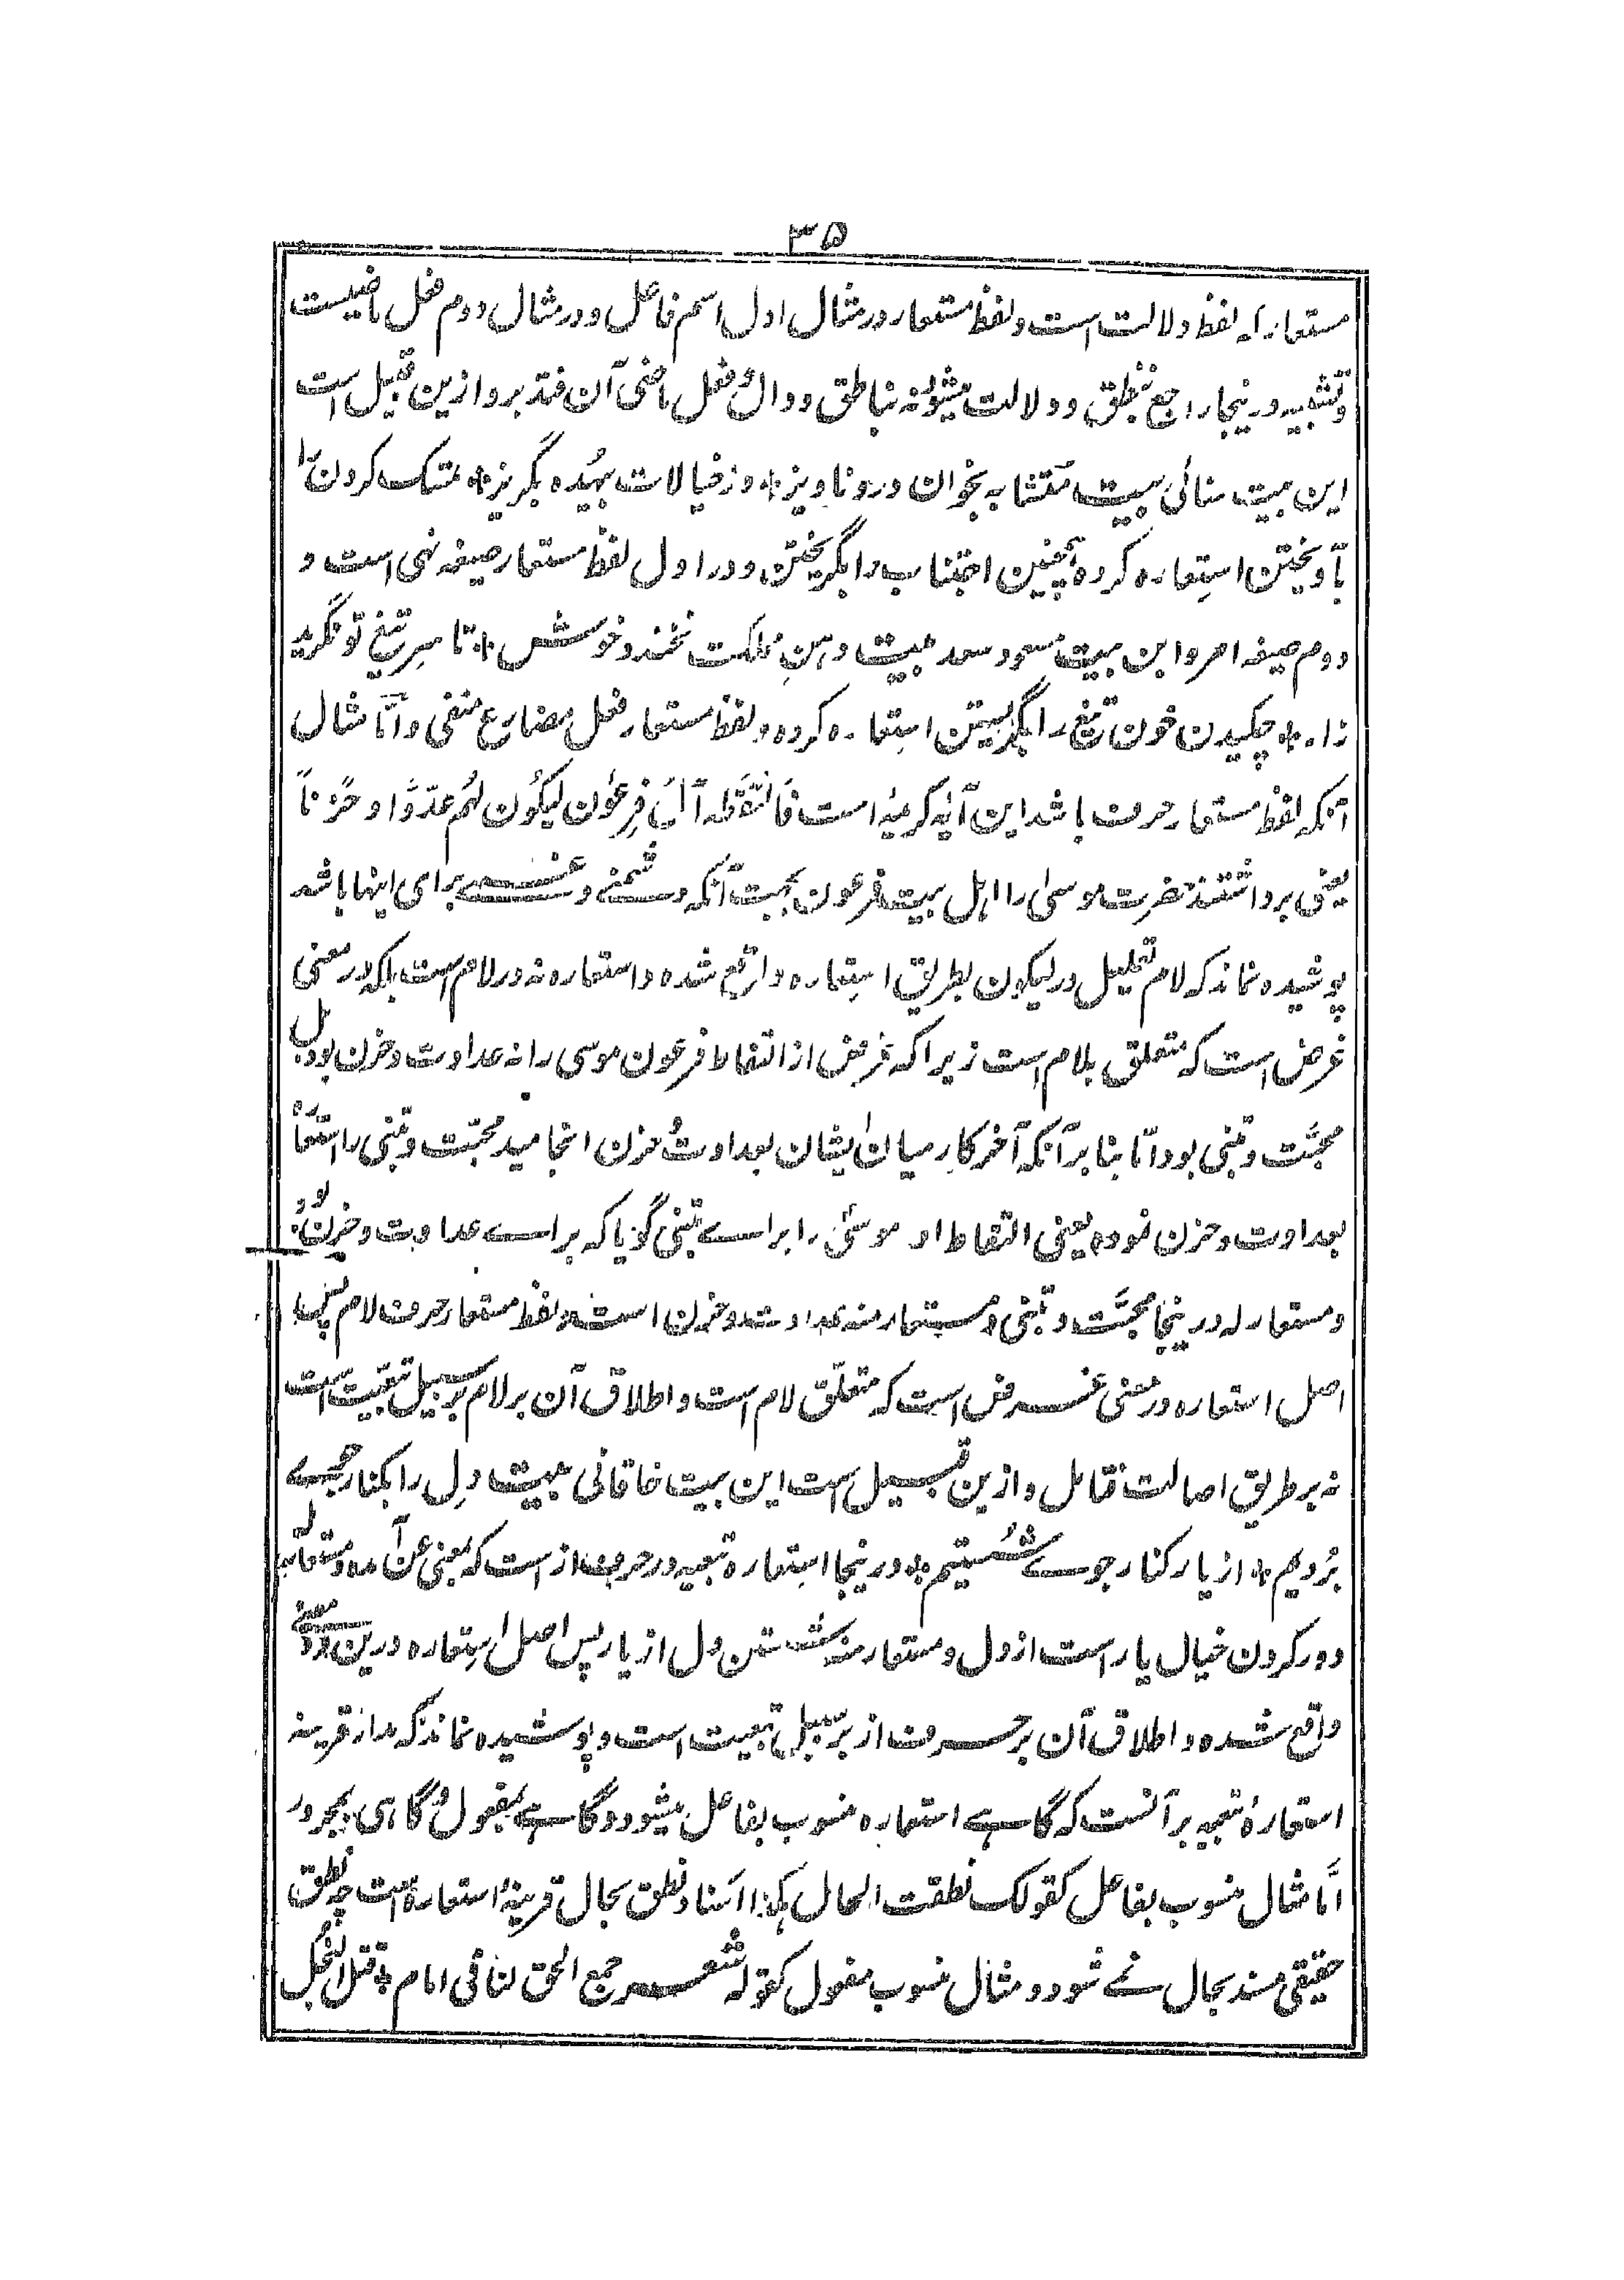 ۳۵
مستعار له لفظ دلالت است و لفظ مستعار در مثال اول اسم فاعل و در مثال دوم فعل ماضیست
و تشبیه درینجا راجع بنطق و دلالت میشود نه بناطق و دال و فعل ماضی آن فتدبر و ازین قبیل است
این بیت سنائی بیت متشابه بخوان درو ناویز * وز خیالات بیهُده بگریز * تمسک کردن را
بآویختن استعاره کرده همچنین اجتناب را بگریختن و در اول لفظ مستعار صیغه نهی است و
دوم صیغه امر و این بیت مسعود سعد بیت دهنِ مملکت نخندد خوش * تا سرِ تیغ تو نگرید
زار * چکیدن خون تیغ را بگریستن استعاره کرده و لفظ مستعار فعل مضارع منفی و اَمّا مثال
آنکه لفظ مستعار حرف باشد این آیۂ کریمه است فَالْتَقَطَهٗ آلُ فِرعَون لیکُون لهُم عدوًّا و حَزَناً
یعنی برداشتند حضرت موسیٰ را اهل بیت فرعون بجهت آنکه دشمنے و غمے برای اینها باشد
پوشیده نماند که لام تعلیل در لیکون بطریق استعاره واقع شده و استعاره نه در لام است بلکه در معنی
غرض است که متعلق بلام است زیرا که غرض از التقاط فرعون موسی را نه عداوت و حزن بود بل
محبّت و تبنی بود امّا بنا بر آنکه آخر کار میان ایشان بعداوت و حزن انجامید محبّت و تبنی را استعاره
بعداوت و حزن نموده یعنی التقاط او موسیٰ را براے تبنی گویا که براے عداوت و حزن بود
و مستعار له درینجا محبّت و تبنی و مستعار منه عداوت و حزن است و لفظ مستعار حرف لام پس
اصل استعاره در معنی غرض است که متعلّق لام است و اطلاق آن بر لام بر سبیل تبعیت است
نه بر طریق اصالت فتامل و ازین قبیل است این بیت خاقانی بیت دلِ را بکنار جوے
بُردیم * از یار کنار جوے شُستیم * درینجا استعاره تبعیه در حرف از است که بمعنی عن آمده و مستعار له
دور کردن خیال یار است از دل و مستعار منه شستن دل از یار پس اصل استعاره درین دو معنے
واقع شده و اطلاق آن بر حرف از بر سبیل تبعیت است و پوشیده نماند که مدار قرینه
استعارۂ تبعیه بر آنست که گاهے استعاره منسوب بفاعل میشود و گاهے بمفعول و گاهی بمجرور
امّا مثال منسوب بفاعل کقولک نطقت الحال بکذا اسناد نطق بحال قرینۂ استعاره است چه نطق
حقیقی مسند بحال نمے شود و مثال منسوب بمفعول کقوله شعر جمع الحق لنا فی امام * قتل البخل